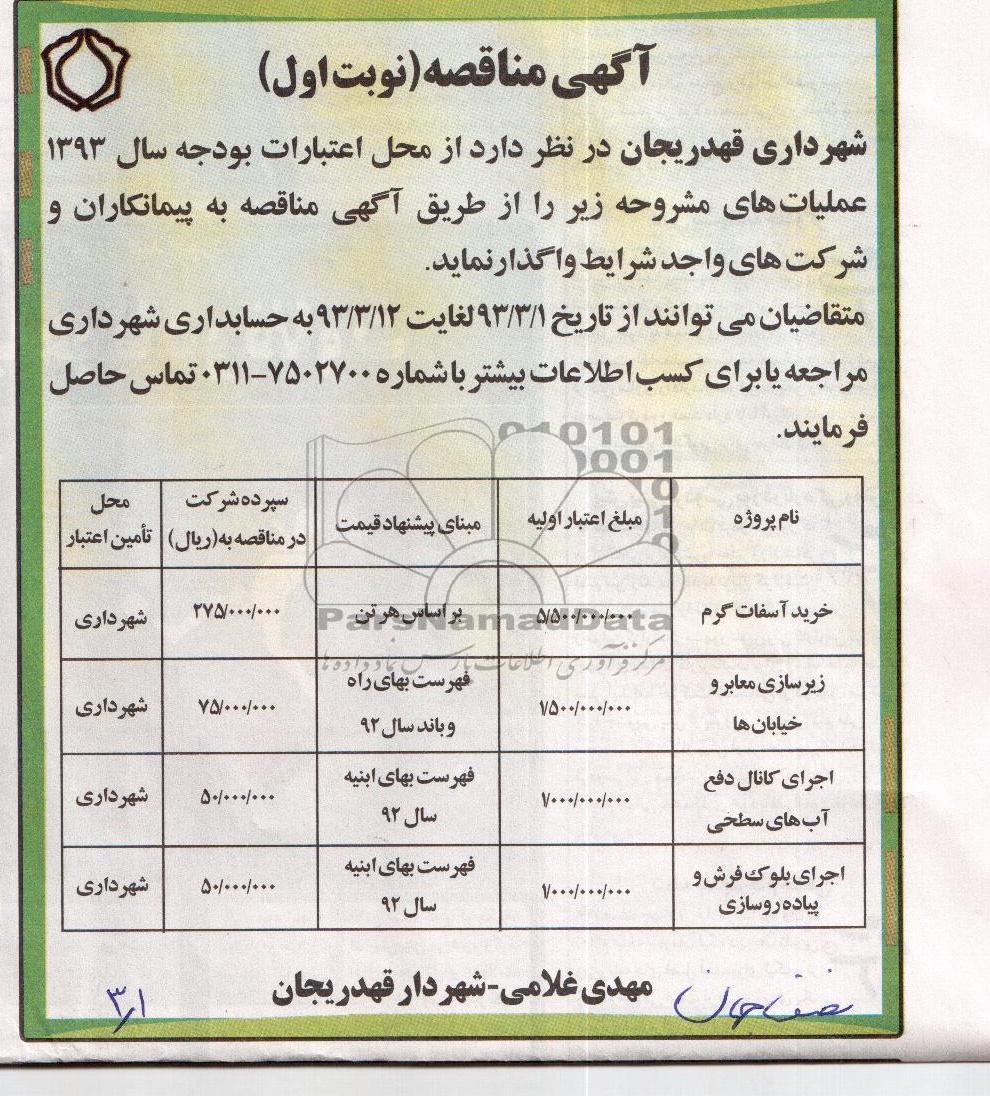 آگهی مناقصه (نوبت اول)
شهرداری قهدریجان در نظر دارد از محل اعتبارات بودجه سال ۱۳۹۳
عملیات های مشروحه زیر را از طریق آگهی مناقصه به پیمانکاران و
شرکت های واجد شرایط واگذار نماید.
متقاضیان می توانند از تاریخ ۹۳/۳/۱ لغایت ۹۳/۳/۱۲ به حسابداری شهرداری
مراجعه یا برای کسب اطلاعات بیشتر با شماره ۷۵۰۲۷۰۰-۰۳۱۱ تماس حاصل
فرمایند.
نام پروژه مبلغ اعتبار اولیه مبنای پیشنهاد قیمت سپرده شرکت در مناقصه به (ریال) محل تأمین اعتبار
خرید آسفات گرم ۵/۵۰۰/۰۰۰/۰۰۰ بر اساس هر تن ۲۷۵/۰۰۰/۰۰۰ شهرداری
زیرسازی معابر و خیابان ها ۱/۵۰۰/۰۰۰/۰۰۰ فهرست بهای راه و باند سال ۹۲ ۷۵/۰۰۰/۰۰۰ شهرداری
اجرای کانال دفع آب های سطحی ۱/۰۰۰/۰۰۰/۰۰۰ فهرست بهای ابنیه سال ۹۲ ۵۰/۰۰۰/۰۰۰ شهرداری
اجرای بلوک فرش و پیاده روسازی ۱/۰۰۰/۰۰۰/۰۰۰ فهرست بهای ابنیه سال ۹۲ ۵۰/۰۰۰/۰۰۰ شهرداری
ParsNamadData
مرکز فرآوری اطلاعات پارس نماد داده ها
مهدی غلامی-شهردار قهدریجان
۳/۱